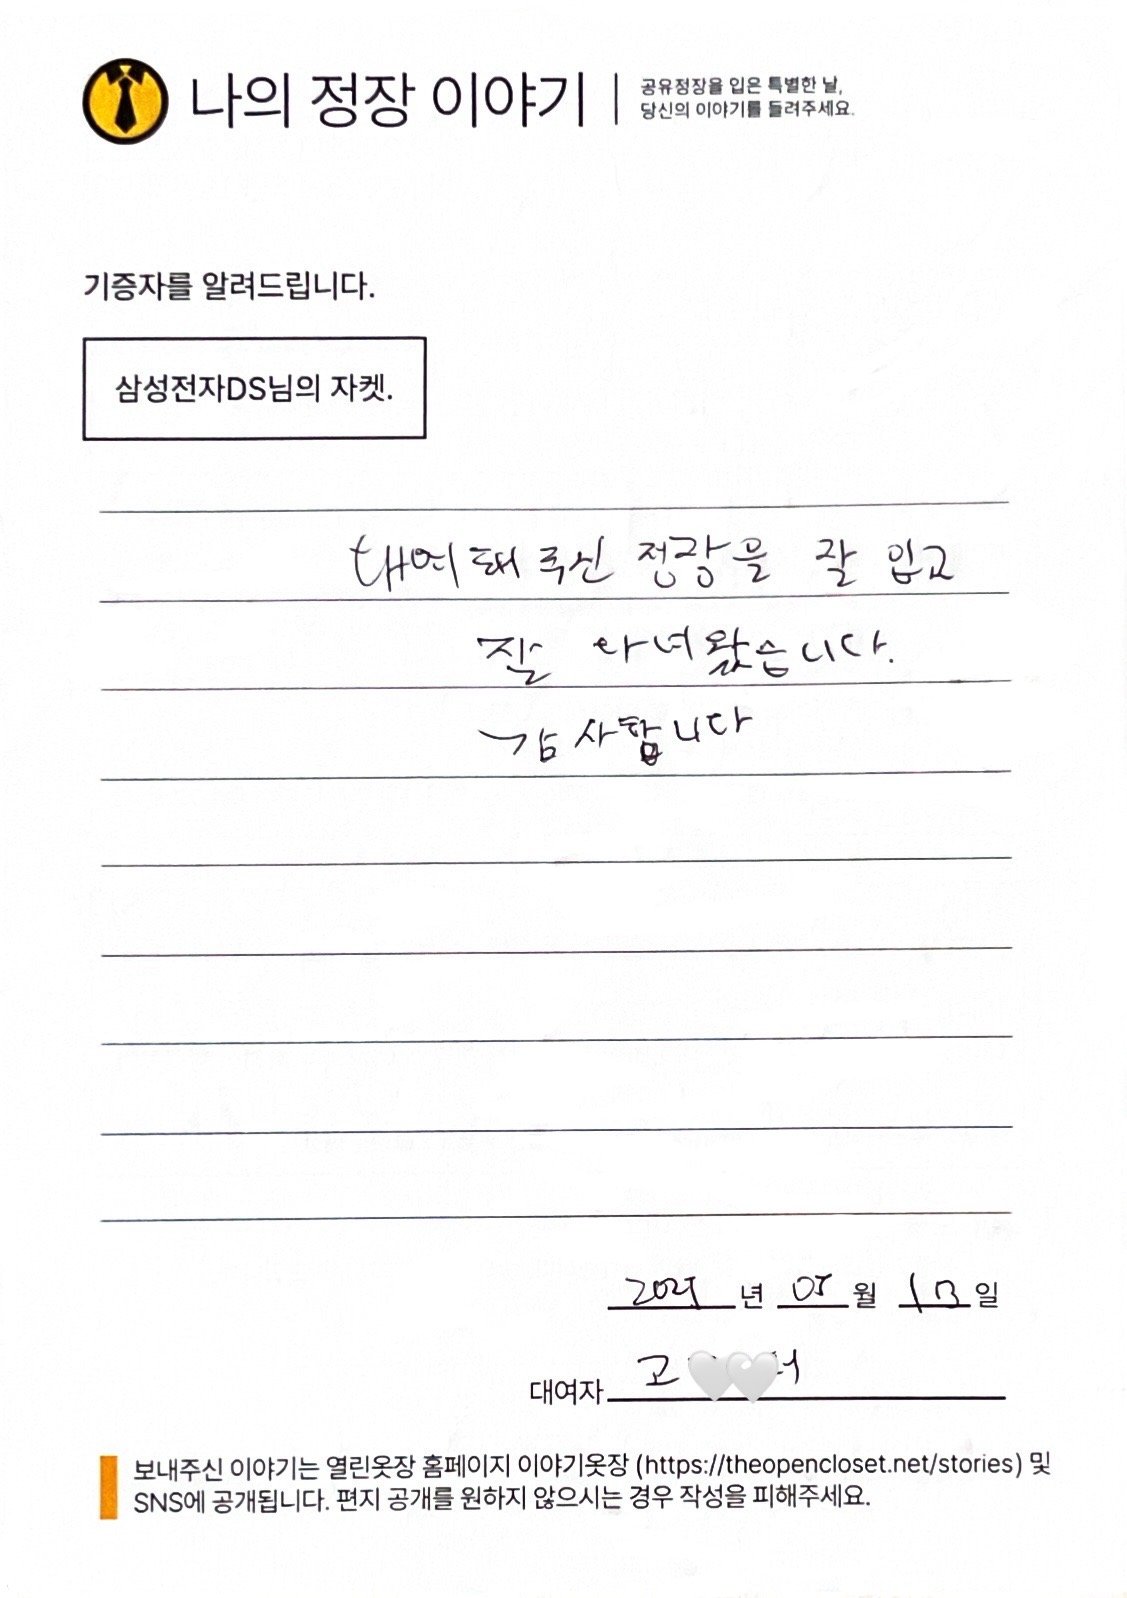 나의 정장 이야기
공유정장을 입은 특별한 날,
당신의 이야기를 들려주세요.
기증자를 알려드립니다.
삼성전자DS님의 자켓.
대여해 주신 정장을 잘 입고
잘 다녀왔습니다.
감사합니다
년 05월 13일
대여자 고
보내주신 이야기는 열린옷장 홈페이지 이야기옷장 (https://theopencloset.net/stories) 및
SNS에 공개됩니다. 편지 공개를 원하지 않으시는 경우 작성을 피해주세요.